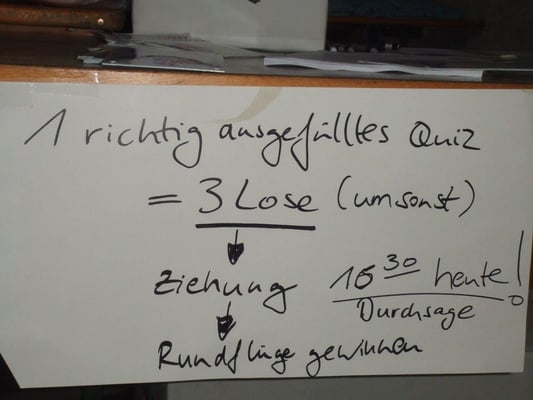 1 richtig ausgefülltes Quiz
= 3 Lose (umsonst)
Ziehung 16 30 heute!
Durchsage
Rundflüge gewinnen